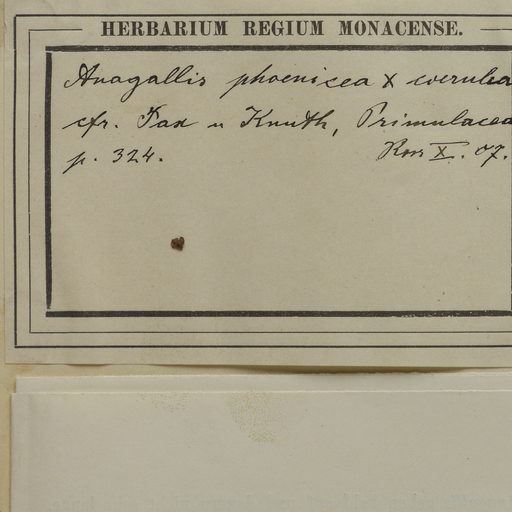 HERBARIUM REGIUM MONACENSE.
Anagallis phoenicea X coerulea
cfr. Pax u Knuth, Primulaceae
p. 324. Ross X. 07.